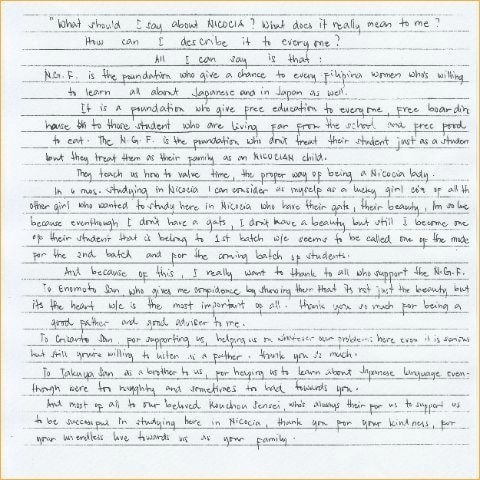 "What should I say about NICOCIA? What does it really mean to me?
How can I describe it to everyone?
All I can say is that:
N.G.F. is the foundation who give a chance to every filipina women who's willing
to learn all about Japanese and in Japan as well.
It is a foundation who give free education to everyone, free boardin
house to those student who are living far from the school and free food
to eat. The N.G.F. is the foundation who don't treat their student just as a studen
but they treat them as their family as an NICOCIAN child.
They teach us how to value time, the proper way of being a Nicocia lady.
In 6 mos. studying in Nicocia I can consider as myself as a lucky girl coz of all th
other girl who wanted to study here in Nicocia who have their gats, their beauty, Im so luc
because eventhough I don't have a gats, I don't have a beauty but still I become one
of their student that is belong to 1st batch w/c seems to be called one of the mode
for the 2nd batch and for the coming batch of students.
And because of this, I really want to thank to all who support the N.G.F.
To Enomoto San who gives me confidence by showing them that its not just the beauty but
its the heart w/c is the most important of all. thank you so much for being a
good father and good adviser to me.
To San, for supporting us, helping us on whatever our problems here even it is serious
but still you're willing to listen as a father. thank you so much.
To Takuya San as a brother to us, for helping us to learn about Japanese language even-
though were too naughty and sometimes to bad towards you.
And most of all to our beloved Sensei, who's always their for us to support us
to be successful in studying here in NICOCIA, thank you for your kindness, for
your unendless love towards us as your family.